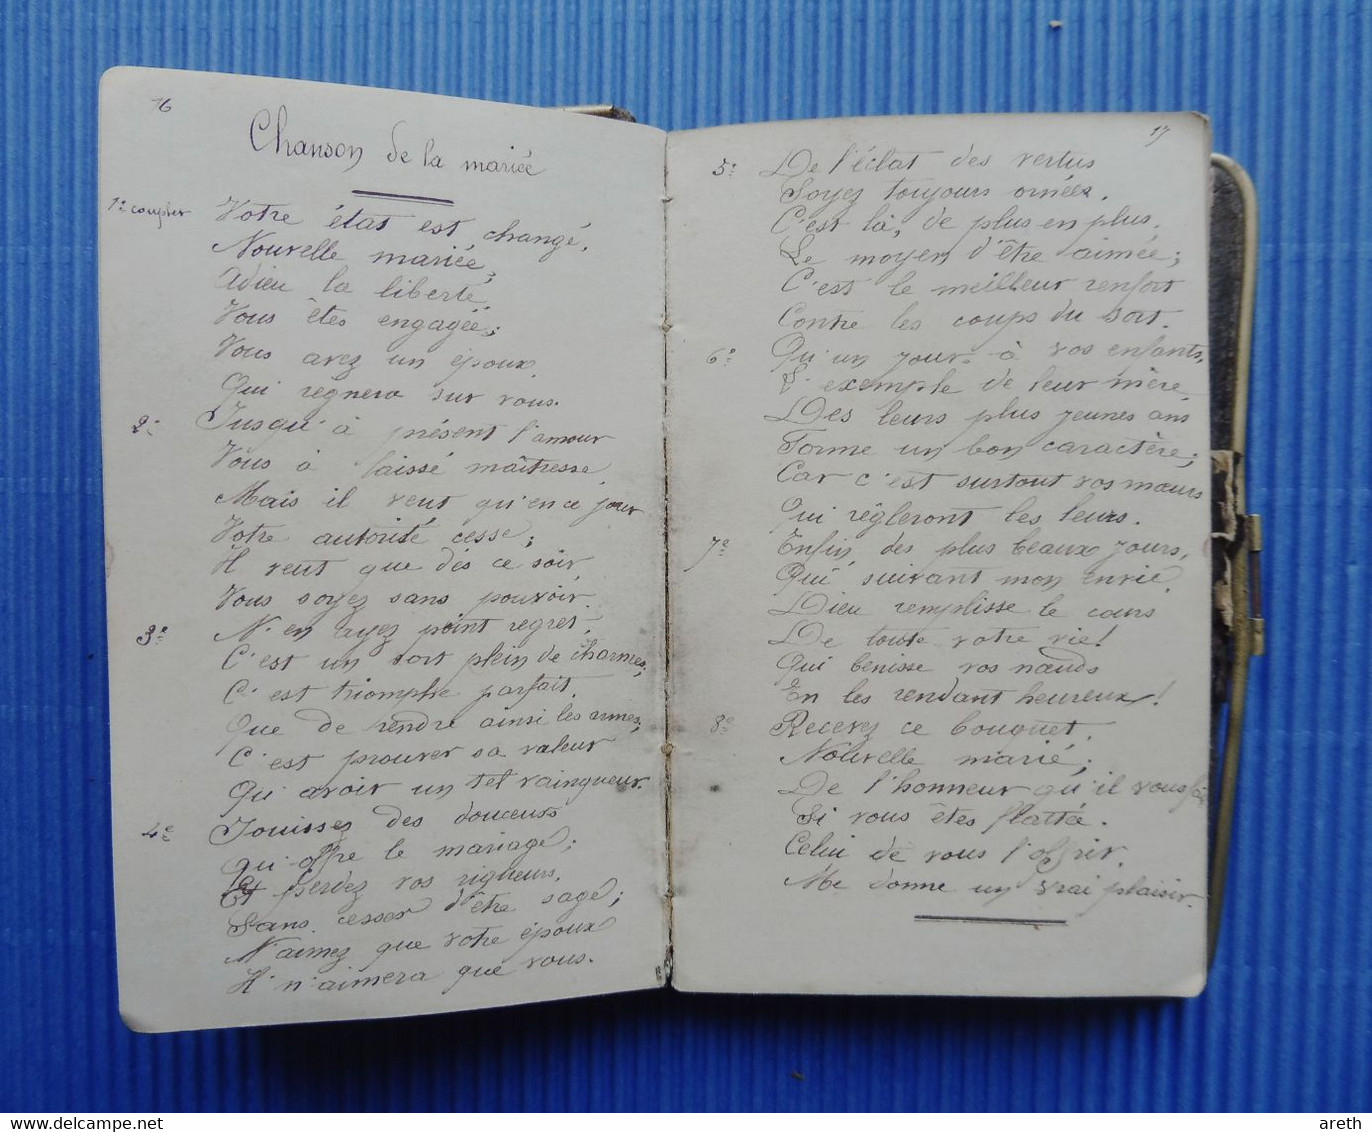 16
Chanson de la mariée
1er couplet
Votre état est changé,
Nouvelle mariée,
Adieu la liberté,
Vous êtes engagée;
Vous avez un époux,
Qui règnera sur vous.
2e
Jusqu'à présent l'amour
Vous à laissé maîtresse,
Mais il veut qu'en ce jour
Votre autorité cesse;
Il veut que dès ce soir
Vous soyez sans pouvoir.
3e
N'en ayez point regret,
C'est un sort plein de charmes;
C'est triomphe parfait,
Que de rendre ainsi les armes;
C'est prouver sa valeur
Qu'avoir un tel vainqueur.
4e
Jouissez des douceurs
Qu'offre le mariage;
Et perdez vos rigueurs,
Sans cesser d'être sage;
N'aimez que votre époux
Il n'aimera que vous.
17
5e
De l'éclat des vertus
Soyez toujours ornée,
C'est là, de plus en plus,
Le moyen d'être aimée;
C'est le meilleur renfort
Contre les coups du sort.
6e
Qu'un jour à vos enfants,
L'exemple de leur mère,
Dès leurs plus jeunes ans
Forme un bon caractère;
Car c'est surtout vos mœurs
Qui règleront les leurs.
7e
Enfin des plus beaux jours,
Que suivant mon envie
Dieu remplisse le cours
De toute votre vie!
Qui benisse vos nœuds
En les rendant heureux!
8e
Recevez ce bouquet,
Nouvelle marié;
De l'honneur qu'il vous fait
Si vous êtes flattée.
Celui de vous l'offrir,
Me donne un vrai plaisir.
areth